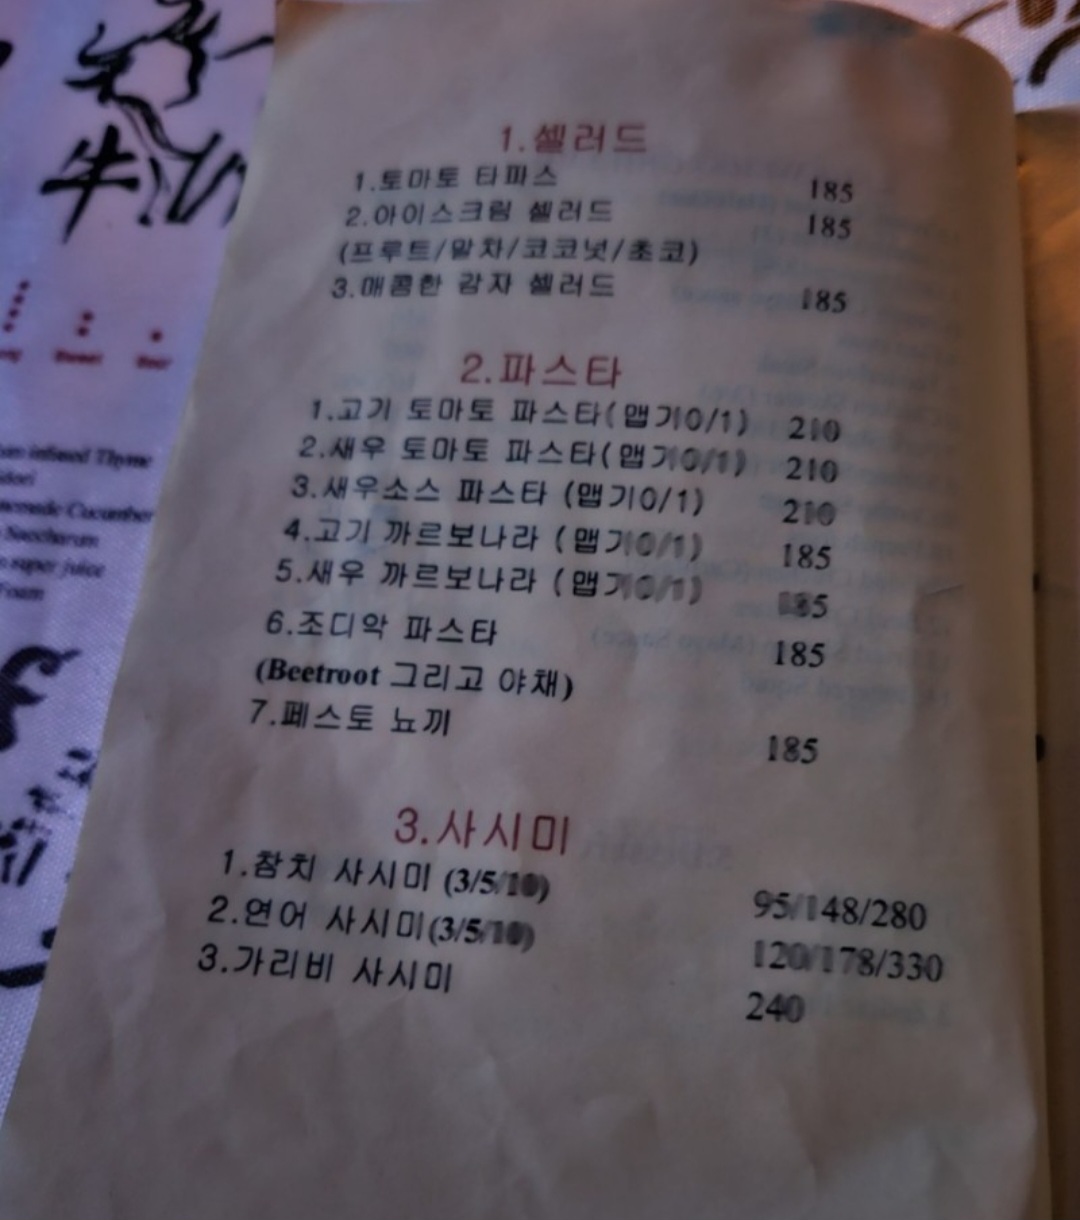 牛
1.셀러드
1.토마토 타파스 185
2.아이스크림 셀러드 185
(프루트/말차/코코넛/초코)
3.매콤한 감자 셀러드 185
2.파스타
1.고기 토마토 파스타(맵기0/1) 210
2.새우 토마토 파스타(맵기0/1) 210
3.새우소스 파스타 (맵기0/1) 210
4.고기 까르보나라 (맵기0/1) 185
5.새우 까르보나라 (맵기0/1) 185
6.조디악 파스타 185
(Beetroot 그리고 야채)
7.페스토 뇨끼 185
3.사시미
1.참치 사시미 (3/5/10) 95/148/280
2.연어 사시미(3/5/10) 120/178/330
3.가리비 사시미 240
Sweet
infused Thyme
Cucumber
Saccharum
super juice
Foam